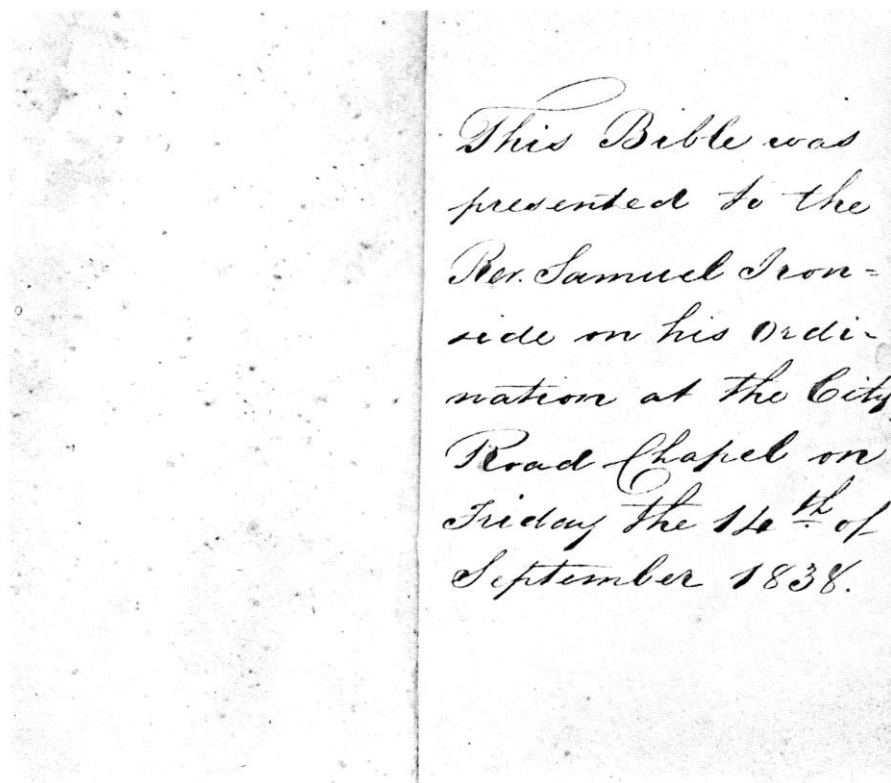 This Bible was
presented to the
Rev. Samuel Iron=
side on his Ordi-
nation at the City
Road Chapel on
Friday the 14th of
September 1838.